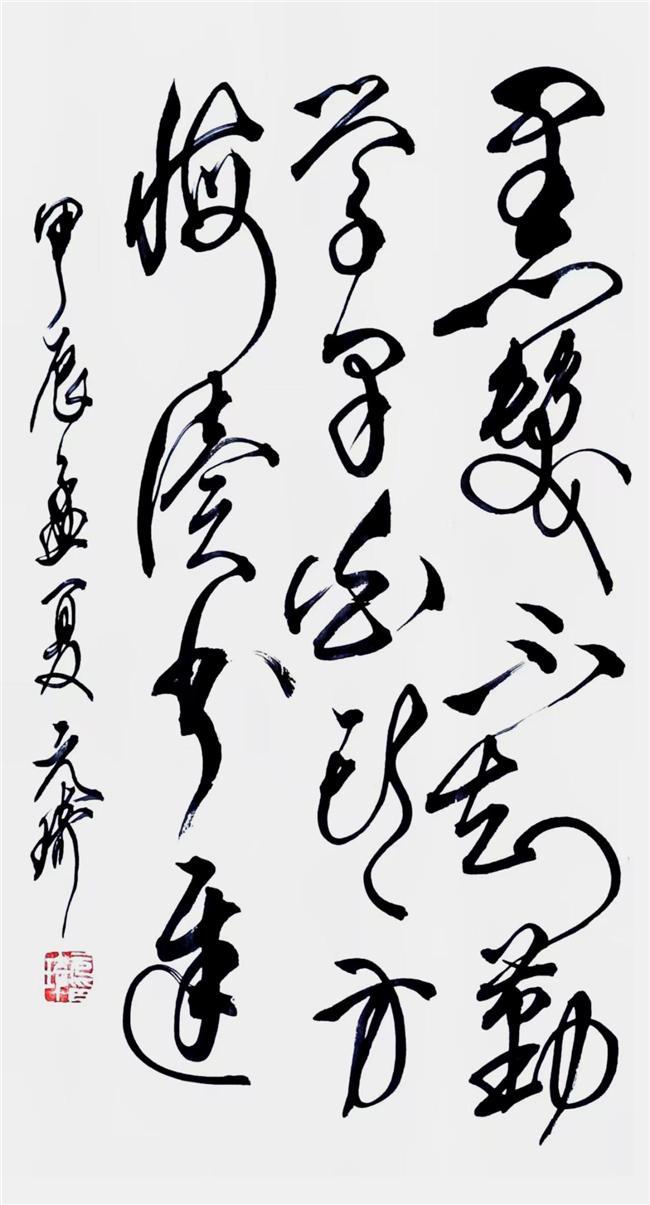 黑髮不知勤
学早白首方
悔读书迟
甲辰孟夏元琦